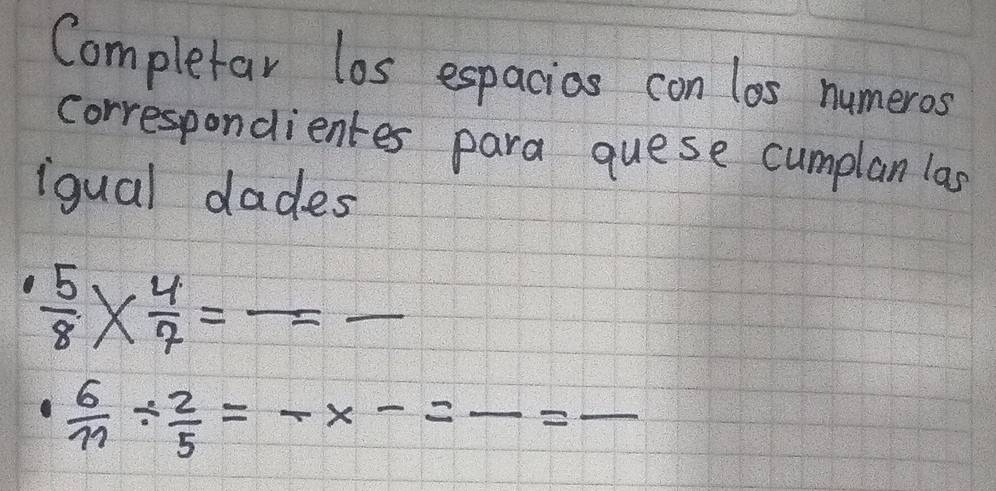 Completar los espacios con los numeros
correspondientes para quese cumplan las
igual dades
• 5/8 X 4/7 = — = —
• 6/11 ÷ 2/5 = — × — = — = —